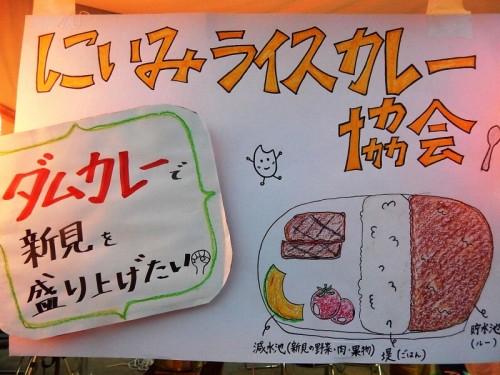 にいみライスカレー
協会
ダムカレーで
新見を
盛り上げたい
減水池(新見の野菜・肉・果物)
堤(ごはん)
貯水池
(ルー)